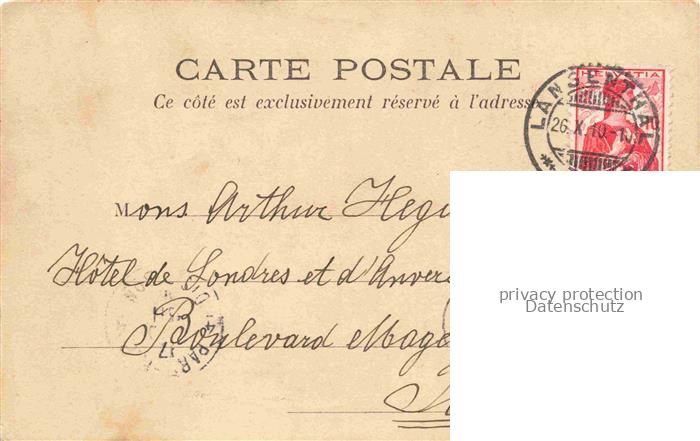 CARTE POSTALE
Ce côté est exclusivement réservé à l'adresse
HELVETIA
LANGENTHAL
26.X.10.-10
Mons Arthur Hegi
Hôtel de Londres et d'Anver
Boulevard Mage
PAR
17
privacy protection
Datenschutz